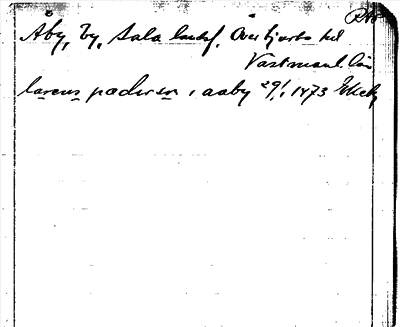 Åby, by, Sala landsf. Övertjurbo hd
Västmanl. län
larens pæderson i aaby 29/1 1473